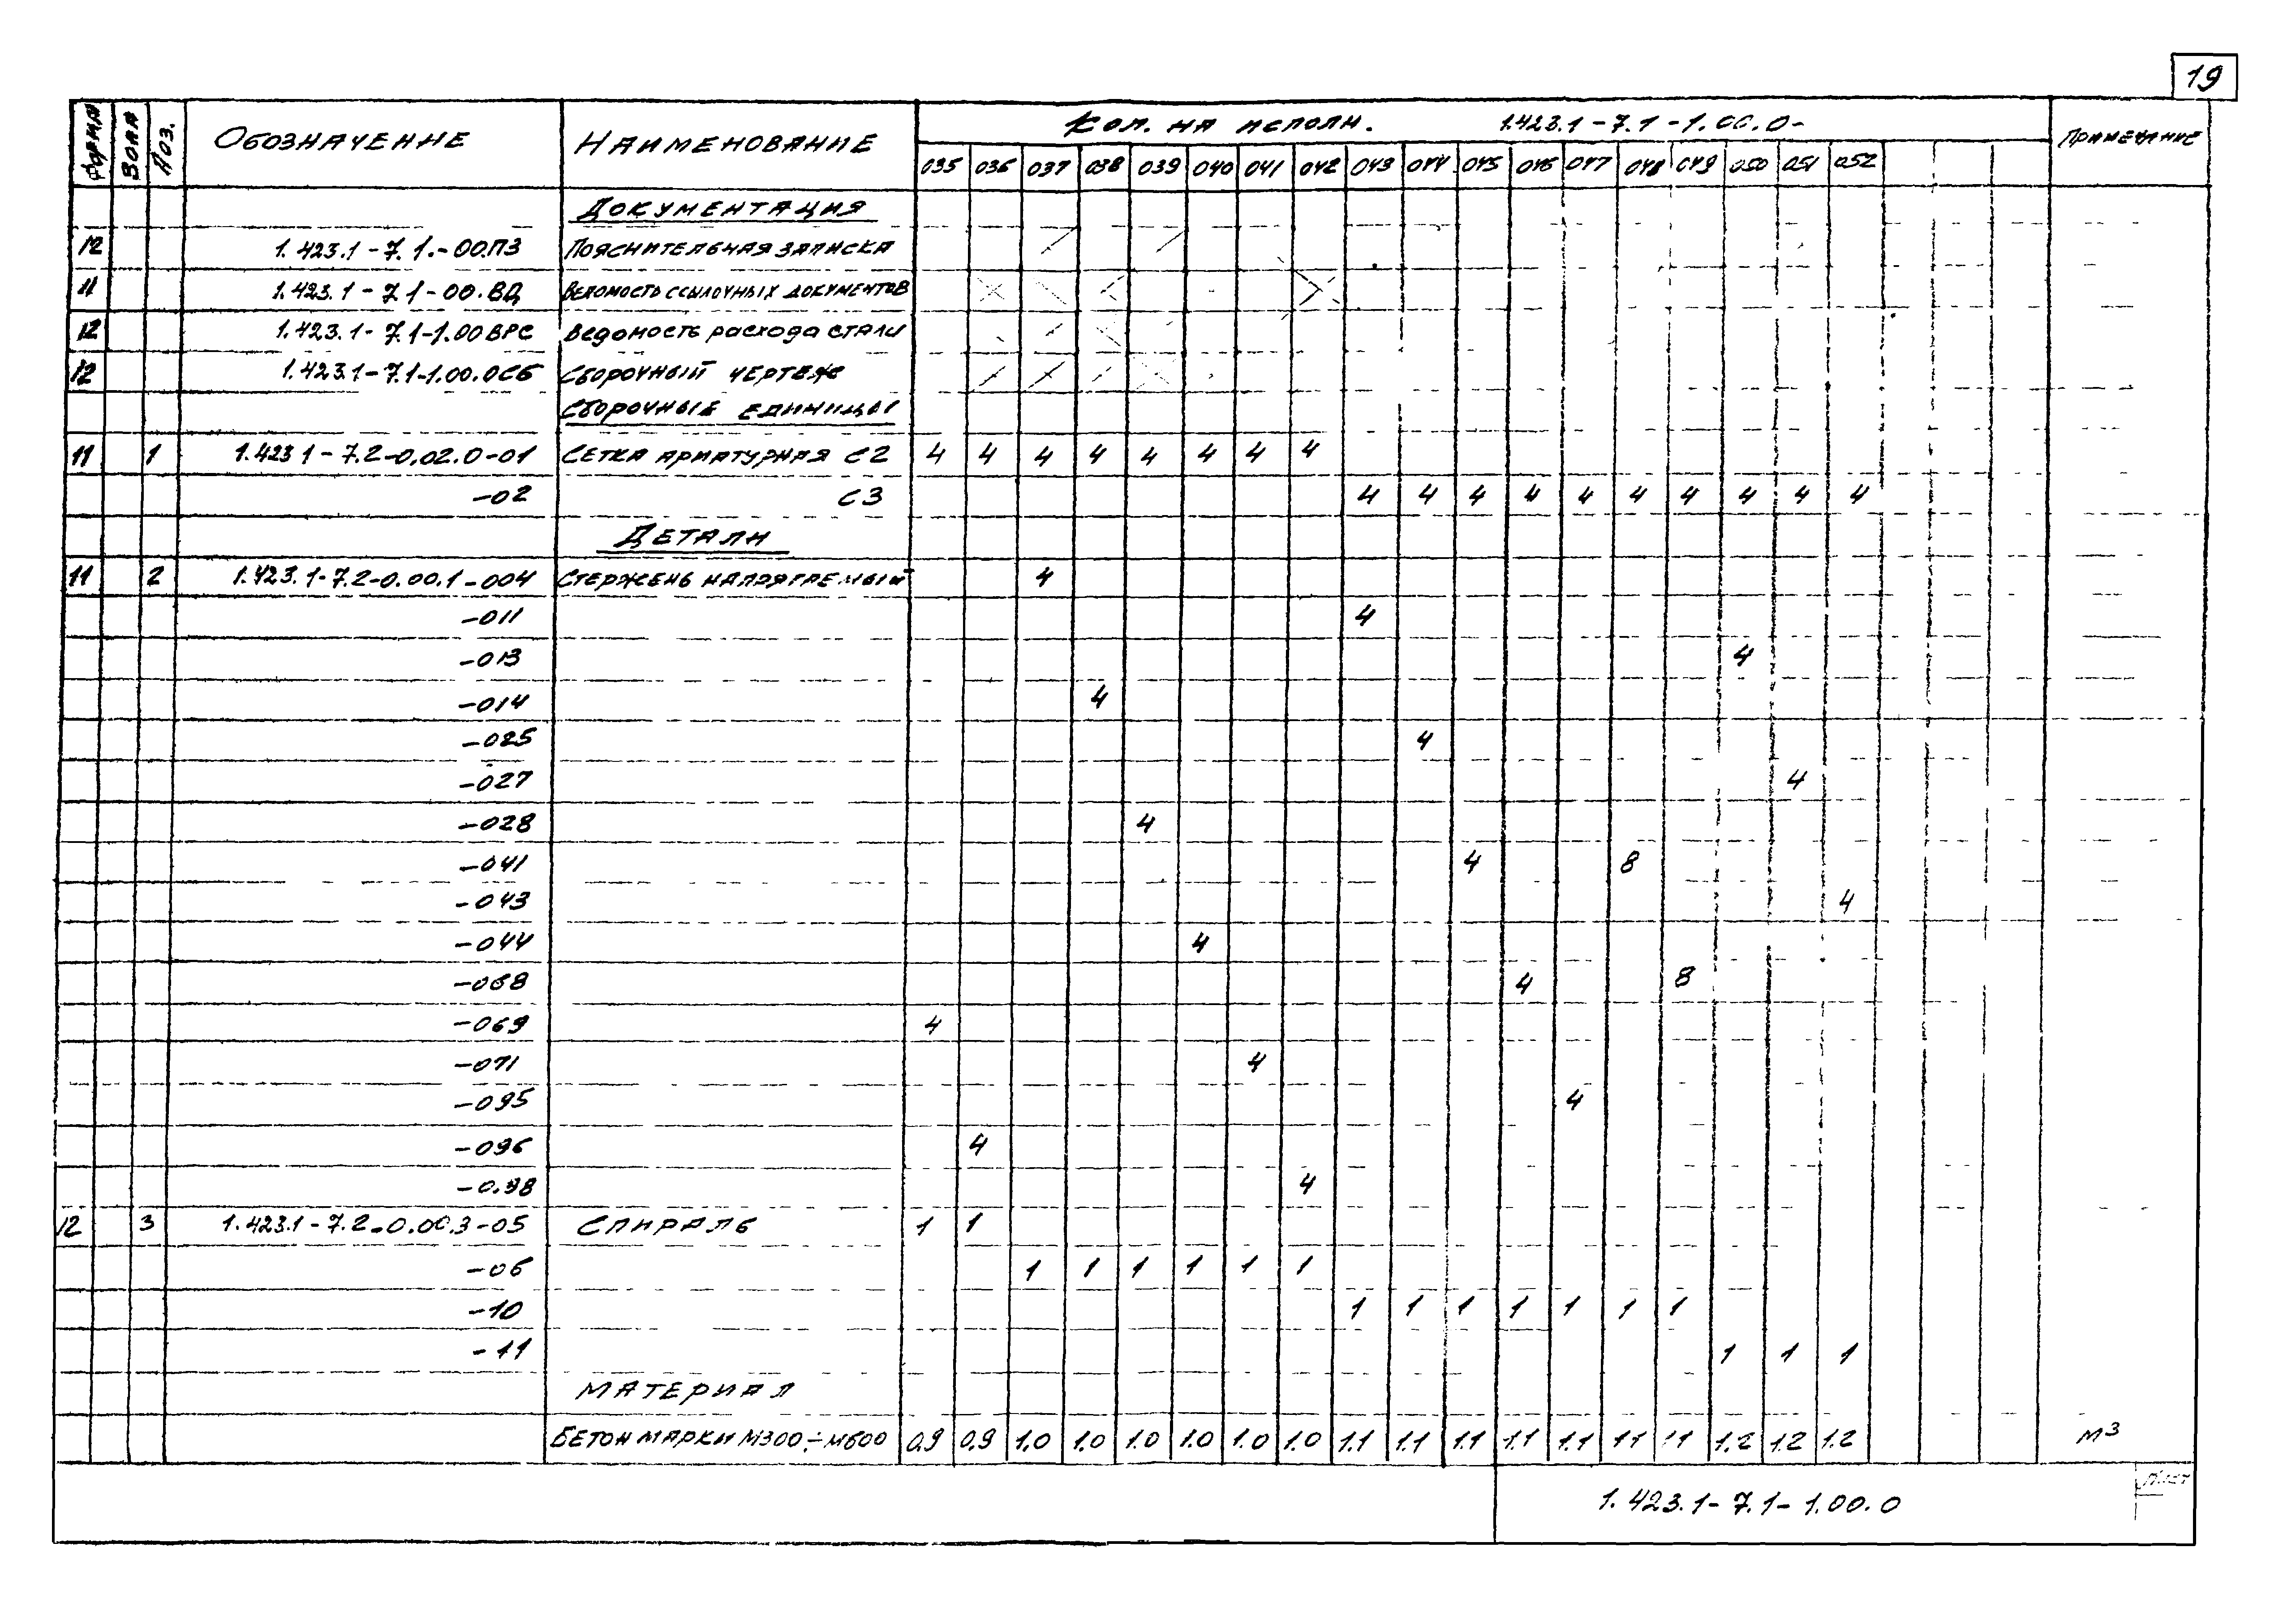 19
Формат Зона Поз. Обозначение Наименование Кол. на исполн. 1.423.1-7.1-1.00.0- Примечание
035 036 037 038 039 040 041 042 043 044 045 046 047 048 049 050 051 052
Документация
12 1.423.1-7.1.-00.ПЗ Пояснительная записка
11 1.423.1-7.1-00.ВД Ведомость ссылочных документов
12 1.423.1-7.1-1.00ВРС Ведомость расхода стали
12 1.423.1-7.1-1.00.0СБ Сборочный чертеж
Сборочные единицы
11 1 1.423 1-7.2-0.02.0-01 Сетка арматурная С2 4 4 4 4 4 4 4 4
-02 С3 4 4 4 4 4 4 4 4 4 4
Детали
11 2 1.423.1-7.2-0.00.1-004 Стержень напрягаемый 4
-011 4
-013 4
-014 4
-025 4
-027 4
-028 4
-041 4 8
-043 4
-044 4
-068 4 8
-069 4
-071 4
-095 4
-096 4
-0.98 4
12 3 1.423.1-7.2-0.00.3-05 Спираль 1 1
-06 1 1 1 1 1 1
-10 1 1 1 1 1 1 1
-11 1 1 1
Материал
Бетон марки М300÷М600 0.9 0.9 1.0 1.0 1.0 1.0 1.0 1.0 1.1 1.1 1.1 1.1 1.1 1.1 1.1 1.2 1.2 1.2 м3
1.423.1-7.1-1.00.0
Лист